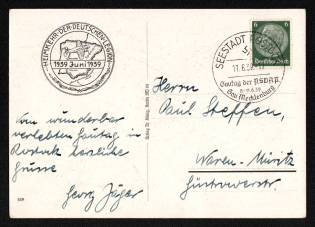 HEIMKEHR DER DEUTSCHEN LEGION
1939 Juni 1939
SEESTADT ROSTOCK
17.6.39
Gautag der NSDAP.
Gau Mecklenburg
6
Deutsches Reich
Herrn
Paul Steffen,
Waren-Müritz
Güstrowerstr.
Vom wunderbar
verlebten Gautag in
Rostock herzliche
Grüsse
Georg Jäger